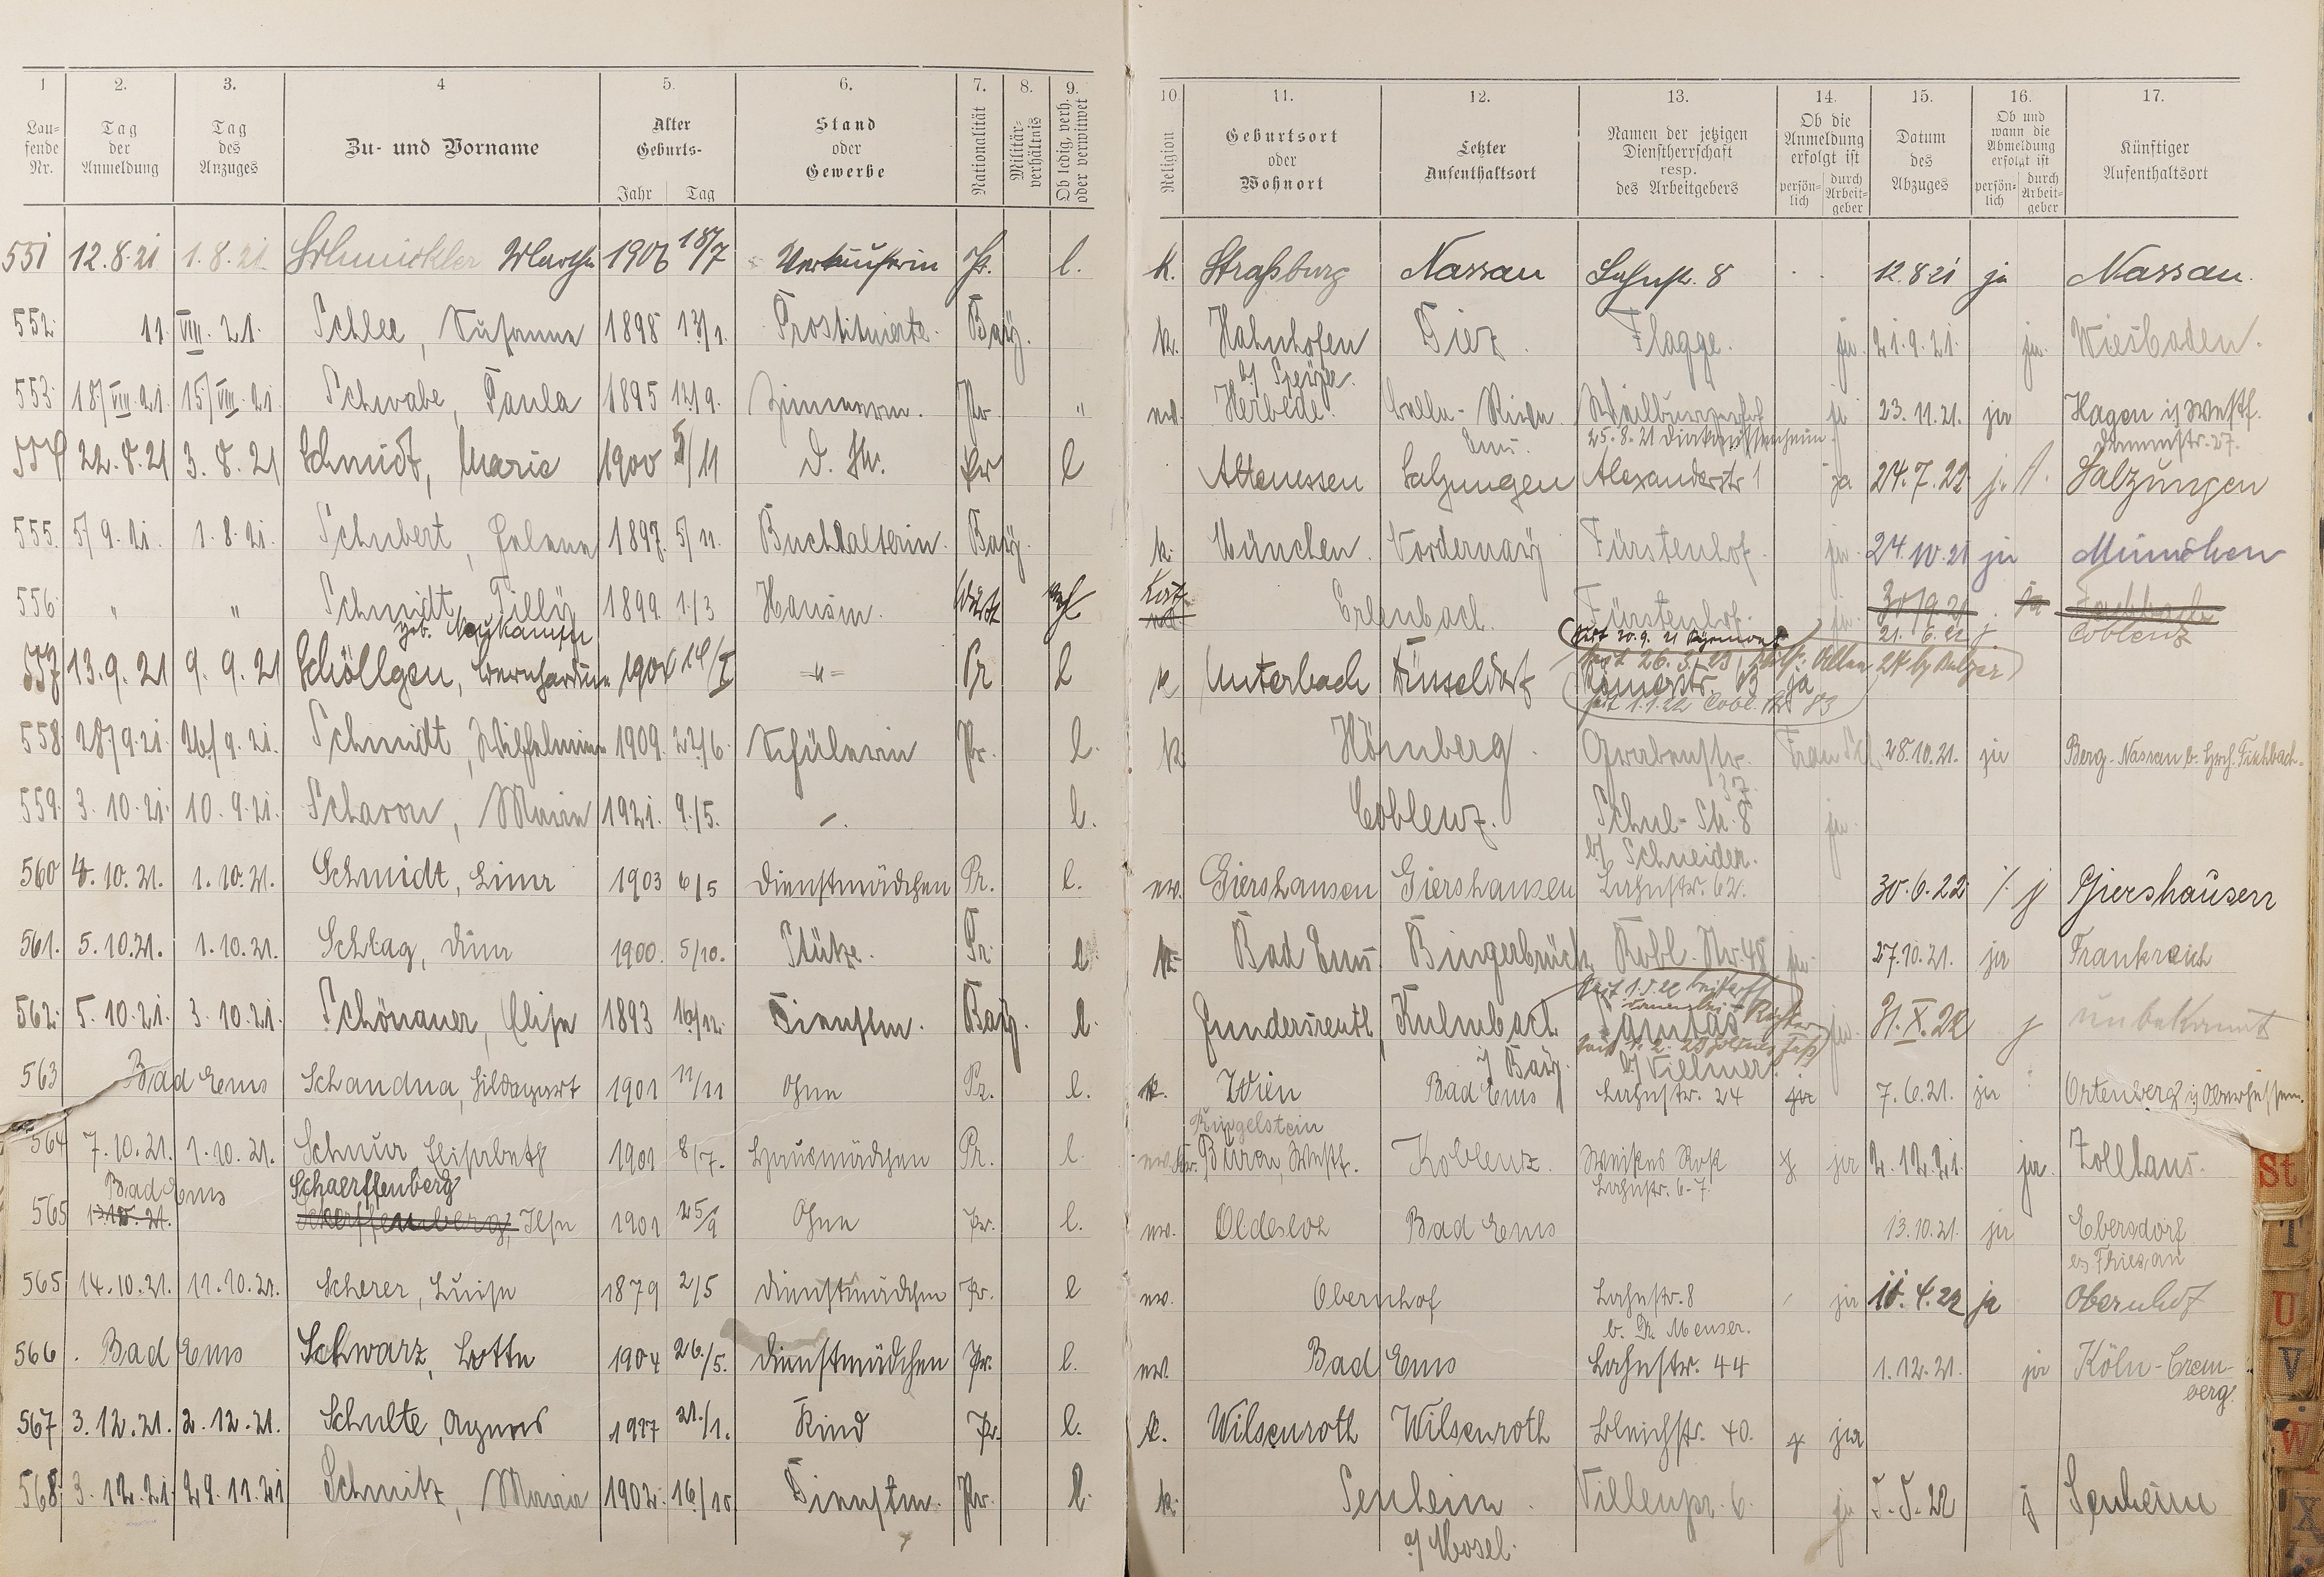 1 2. 3. 4 5. 6. 7. 8. 9. 10. 11. 12. 13. 14. 15. 16. 17.
Laufende Nr. Tag der Anmeldung Tag des Anzuges Zu- und Vorname Alter Geburts- Jahr Tag Stand oder Gewerbe Nationalität Militärverhältnis Ob ledig, verh. oder verwitwet Religion Geburtsort oder Wohnort Letzter Aufenthaltsort Namen der jetzigen Dienstherrschaft resp. des Arbeitgebers Ob die Anmeldung erfolgt ist persönlich durch Arbeitgeber Datum des Abzuges Ob und wann die Abmeldung erfolgt ist persönlich durch Arbeitgeber Künftiger Aufenthaltsort
551 12.8.21 1.8.21 Schmickler Martha 1906 18/7 Verkäuferin Pr. l. k. Straßburg Nassau Lahnstr. 8 12.8.21 ja Nassau.
552. 11. VIII. 21. Schlee, Susanna 1898 13/1. Prostituierte. Bay. k. Hahnhofen Diez. Flagge. ja. 21.9.21. ja. Wiesbaden.
b/ Speyer.
553. 18/VIII.21. 15/VIII.21. Schwabe, Paula 1895 12/9. Zimmerm. Pr. " ev. Herbede. 23.11.21. ja Hagen i/ Westf.
Ems. 25.8.21 Diakonissenheim.
554 22.8.21 3.8.21 Schmidt, Marie 1900 5/11 Pr l Altenessen Salzungen Alexanderstr 1 ja 24.7.22. Salzungen
555. 5/9.21. 1.8.21. Schubert, Helene 1897. 5/11. Buchhalterin. Bay. k. München. Vordernay Fürstenhof. ja. 24.10.21 ja München
556. " " Schmidt, Tilly 1899. 1./3 Hausm. Kat. Erlenbach. Fürstenhof. ja.
geb. Neukamm 21.6.22 j Coblenz
557 13.9.21 9.9.21 Schöllgen, Bernhardine Pr l k Unterbach Düsseldorf Römerstr. 63 ja
seit 1.1.22 Cobl. Str 83
558. 28/9.21. 26/9.21. Schmidt, Wilhelmine 1909. 22/6. Schülerin Pr. l. k. Hömberg. Grabenstr. 28.10.21. ja Berg-Nassau
37.
559. 3.10.21. 10.9.21. Scharon, Maria 1921. 9./5. l. Coblenz. Schul-Str. 8 ja.
b/ Schneider.
560 4.10.21. 1.10.21. Schmidt, Lina 1903 6/5 Dienstmädchen Pr. l. ev. Giershausen Giershausen Lahnstr. 62. 30.6.22 j Giershausen
561. 5.10.21. 1.10.21. Schlag, Dina 1900. 5/10. Stütze. Pr. l k. Bad Ems. Bingerbrück. Kobl. Str. 48 ja. 27.10.21. ja Frankreich
562. 5.10.21. 3.10.21. Schönauer, Elise 1893 16/12. Dienstm. Bay. l. Kulmbach ja. 31.X.22 j unbekannt
i/ Bay. b/ Villmer.
563 Bad Ems Schandua, Hildegart 1901 11/11 Ohne Pr. l. k. Wien Bad Ems Lahnstr. 24 ja 7.6.21. ja Ortenberg i/ Oberhessen.
564 7.10.21. 1.10.21. Schnur Elisabeth 1901 8/7. Hausmädchen Pr. l. ev. Koblenz. Weißes Roß ja 2.12.21. ja. Zollhaus.
Lahnstr. 6-7.
Bad Ems Schaerffenberg
565 13.10.21. Scherffenberg, Ilse 1901 25/9 Ohne Pr. l. ev. Oldesloe Bad Ems 13.10.21. ja Ebersdorf
565 14.10.21. 11.10.21. Scherer, Luise 1879 2/5 Dienstmädchen Pr. l ev. Obernhof Lahnstr. 8 ja 11.4.22 ja Obernhof
b. Meuser.
566. Bad Ems Schwarz, Lotte 1904 26./5. Dienstmädchen Pr. l. ev. Bad Ems Lahnstr. 44 1.12.21. ja Köln-Crem-
berg.
567 3.12.21. 2.12.21. Schulte, Agnes 1917 21./1. Kind Pr. l. k. Wilsenroth Wilsenroth Bleichstr. 40. ja
568. 3.12.21. 29.11.21 Schmitz, Maria 1902. 16/10 Dienstm. Pr. l. k. Senheim. Villenpr. 6. ja 5.5.22 j Senheim
a/ Mosel.
St
T
U
V
W
X